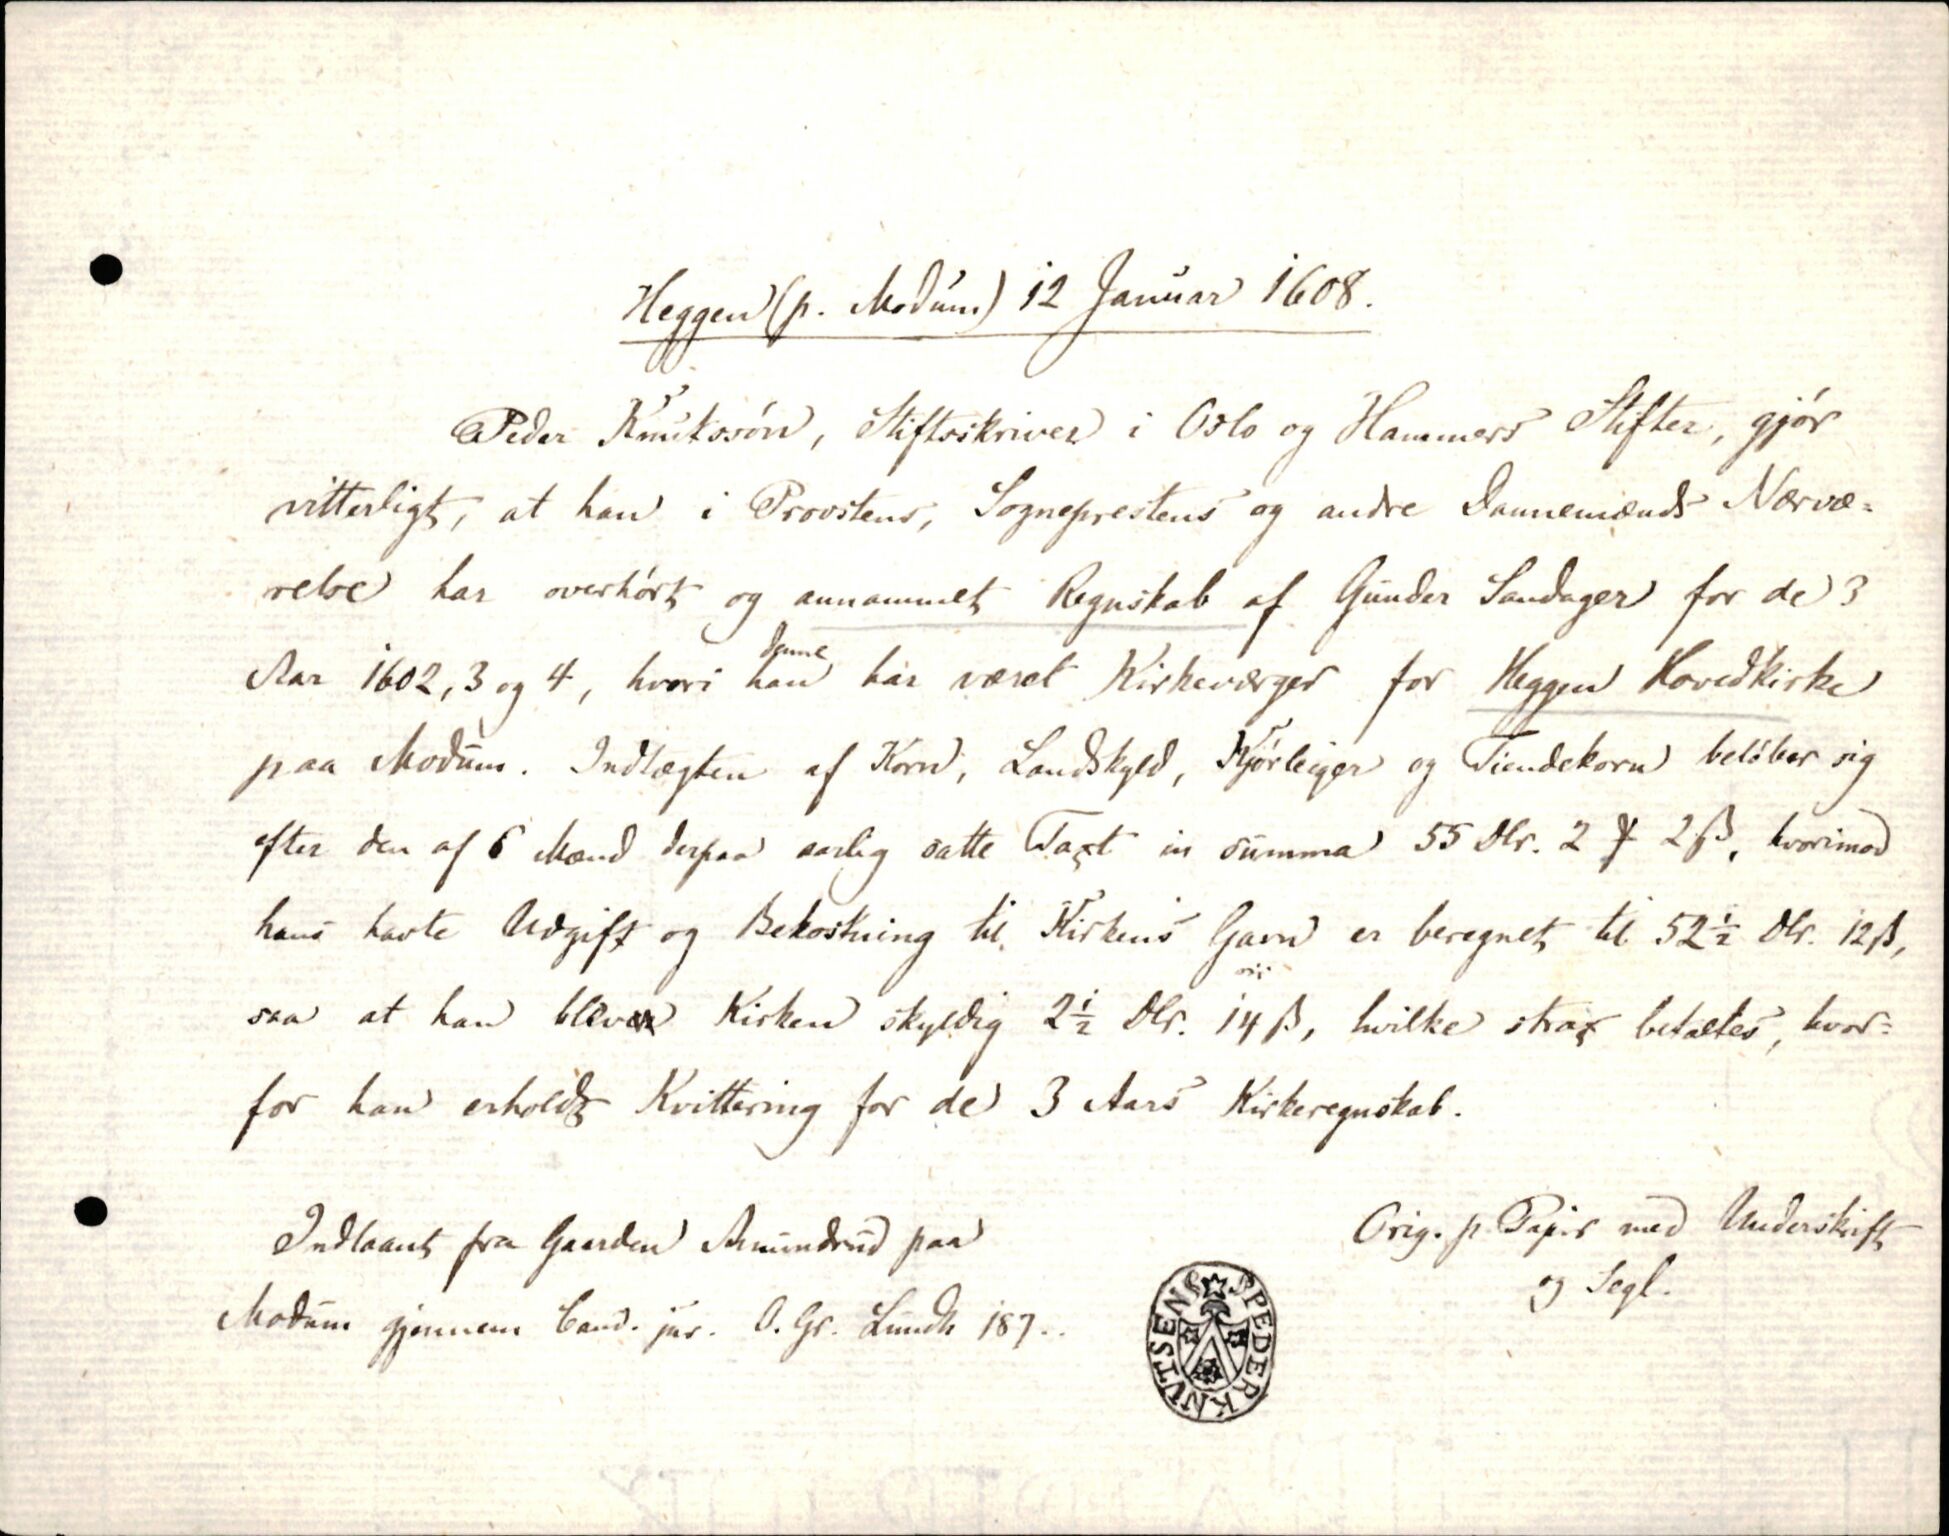 Heggen (p. Modum) 12 Januar 1608.
Peder Knutssön, Stiftsskriver i Oslo og Hammers Stifter, gjör
vitterligt, at han i Provstens, Sogneprestens og andre Dannemænds Nærvæ=
relse har overhört og annammet Regnskab af Gunder Sandager for de 3
denne
Aar 1602, 3 og 4, hvori han har været Kirkeværger for Heggen Hovedkirke
paa Modum. Indtægten af Korn, Landskyld, Kjörleiger og Tiendekorn belöber sig
efter den af 6 Mænd derpaa aarlig satte Taxt in summa 55 Dlr. 2 ß, hvorimod
hans havte Udgift og Bekostning til Kirkens Gavn er beregnet til 52½ Dlr. 12 ß,
saa at han blev Kirken skyldig 2½ Dlr. 14 ß, hvilke strax betaltes, hvor=
for han erholdt Kvittering for de 3 Aars Kirkeregnskab.
Indlaant fra Gaarden Amundrud paa
Modum gjennem Cand. jur. O. Gr. Lundh 187..
Orig. p. Papir med Underskrift
og Segl.
S PEDER KNVTSENS